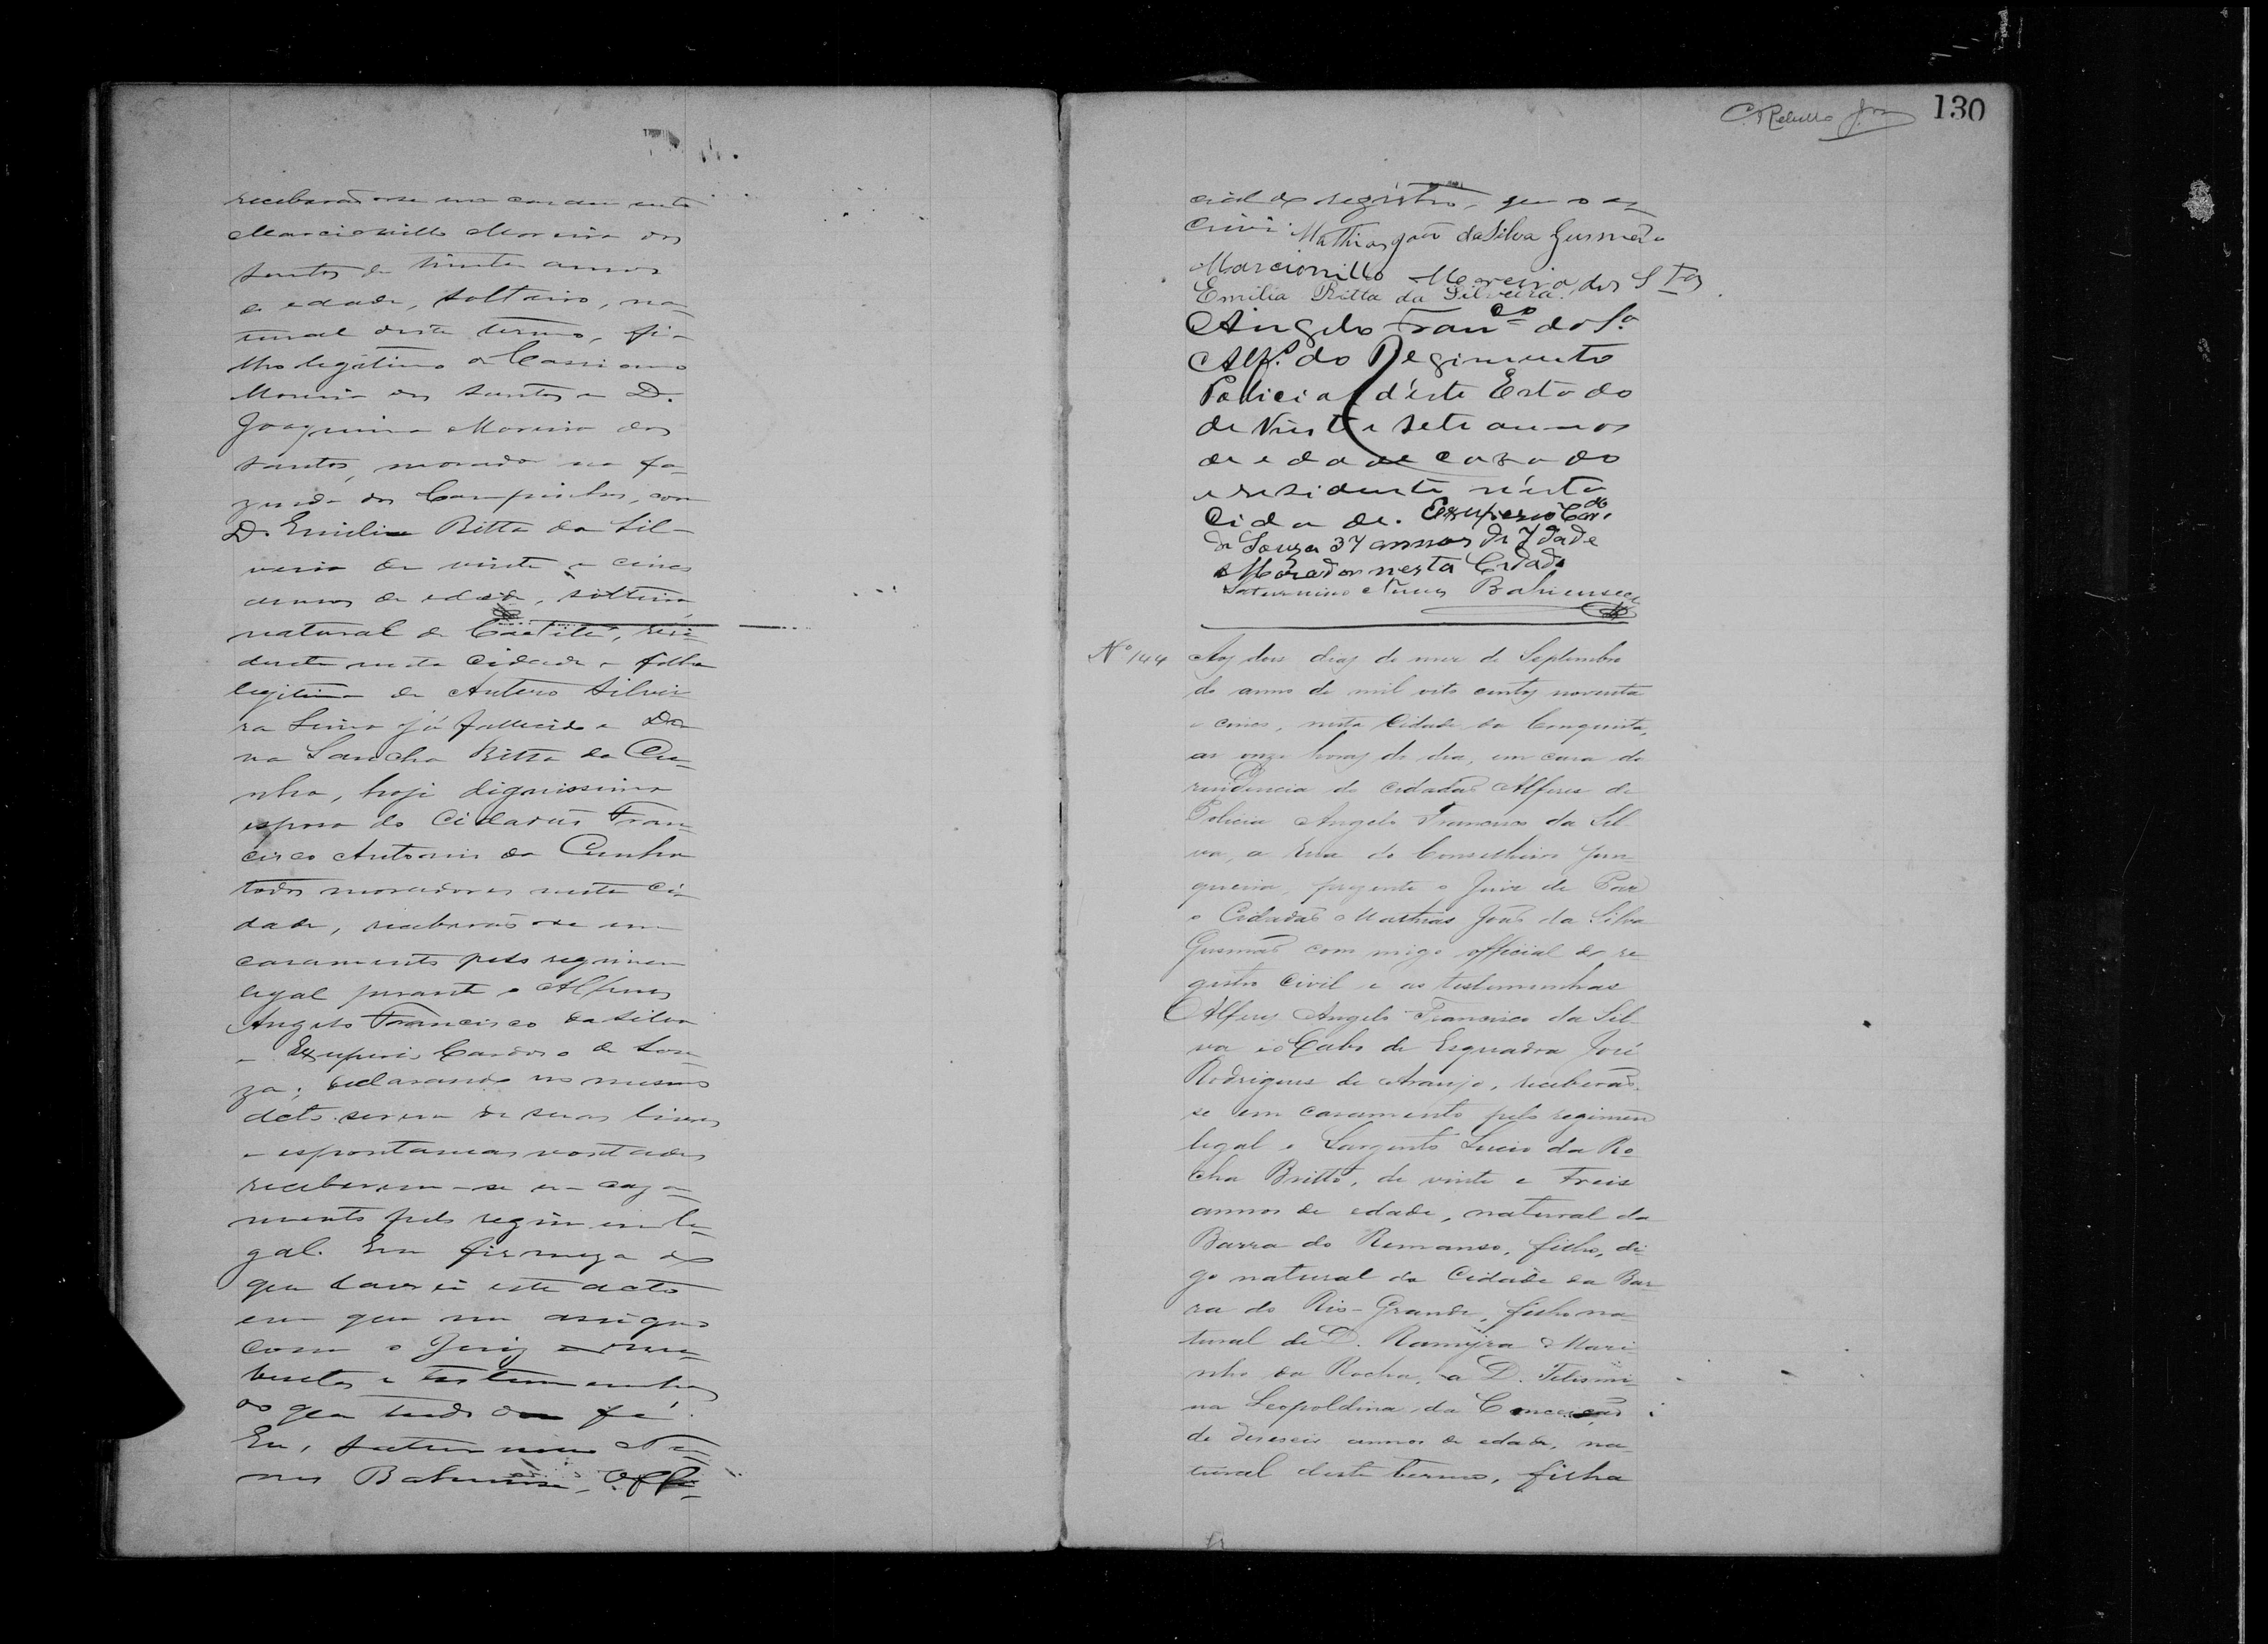 receberão-se em casamento
Marcionillo Moreira dos
Santos de trinta annos
de edade, solteiro, na-
tural deste termo, fi-
lho legitimo de Cassiano
Moreira dos Santos e D.
Joaquina Moreira dos
Santos, morador na fa-
zenda dos Campinhos, com
D. Emilia Ritta da Sil-
veira de vinte e cinco
annos de edade, solteira,
natural de Caetité, resi-
dente nesta Cidade e filha
legitima de Antero Silvei-
ra já fallecido e Do-
na Sancha Ritta da Cu-
nha, hoje dignissima
esposa do Cidadão Fran-
cisco Antonio da Cunha
todos moradores nesta Ci-
dade, receberão-se em
casamento pelo regimen
legal perante o Alferes
Angelo Francisco da Silva
e Exuperio Cardoso de Sou-
za; declarando no mesmo
acto serem de suas livres
e espontaneas vontades
receberem-se em casa-
mento pelo regimen le-
gal. Em firmeza do
que lavrei este acto
em que me assigno
com o Juiz e
testemunhas
do que tudo dou fé.
Eu, Saturnino Nu-
nes Bahiense, Offi-
C. Rebello Jor 130
cial do registro, que o es-
crivi. Mathias João da Silva Gusmão
Marcionillo Moreira dos Stos
Emilia Ritta da Silveira.
Angelo Franco da Sa
Alfs. do Regimento
Policial d'este Estado
de Vinte e sete annos
de edade cazado
e residente n'esta
Cidade. Exuperio Cardo
de Souza 37 annos de Idade
e Morador nesta Cidade
Saturnino Nunes Bahiense
No 144 Aos dois dias do mez de Septembro
do anno de mil oito centos noventa
e cinco, nesta Cidade da Conquista,
as onze horas do dia, em casa da
residencia do cidadão Alferes de
Policia Angelo Francisco da Sil-
va, a Rua do Conselheiro Jun-
queira, prezente o Juiz de Paz
o Cidadão Mathias João da Silva
Gusmão com migo official do re-
gistro civil e as testemunhas
Alferes Angelo Francisco da Sil-
va e o Cabo de Esquadra José
Rodrigues de Araujo, receberão-
se em casamento pelo regimen
legal o Sargento Lucio da Ro-
cha Britto, de vinte e treis
annos de edade, natural da
Barra do Remanso, filho, di-
go natural da Cidade da Bar-
ra do Rio-Grande, filho na-
tural de D. Ramyra Mari-
nho da Rocha, e D. Felismi-
na Leopoldina da Conceição
de deseseis annos de edade, na-
tural deste termo, filha